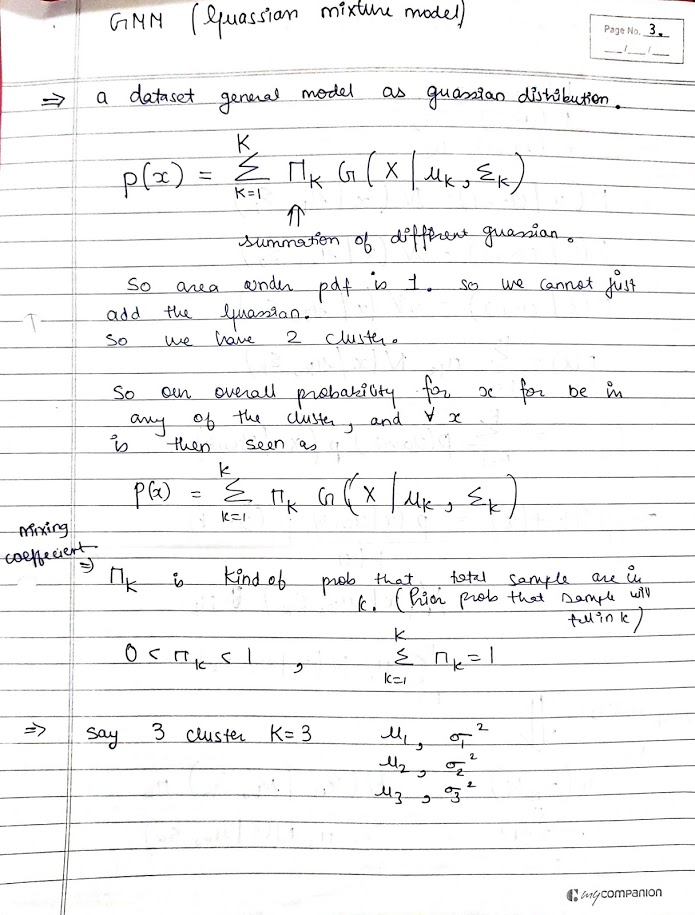 GMM (Guassian mixture model)
Page No. 3.
⇒ a dataset general model as guassian distribution.
p(x) = K Σ K=1 Π_K G(X | μ_K, Σ_K)
⇑
summation of different guassian.
So area under pdf is 1. so we cannot just
add the Guassian.
So we have 2 cluster.
So our overall probability for x for be in
any of the cluster, and ∀ x
is then seen as
p(x) = k Σ k=1 Π_k G(X | μ_k, Σ_k)
mixing
coeffecient
⇒ Π_k is kind of prob that total sample are in
k. (Prior prob that sample will
fall in k)
0 < Π_k < 1 , k Σ k=1 Π_k = 1
⇒ say 3 cluster K=3 μ_1, σ_1^2
μ_2, σ_2^2
μ_3, σ_3^2
mycompanion